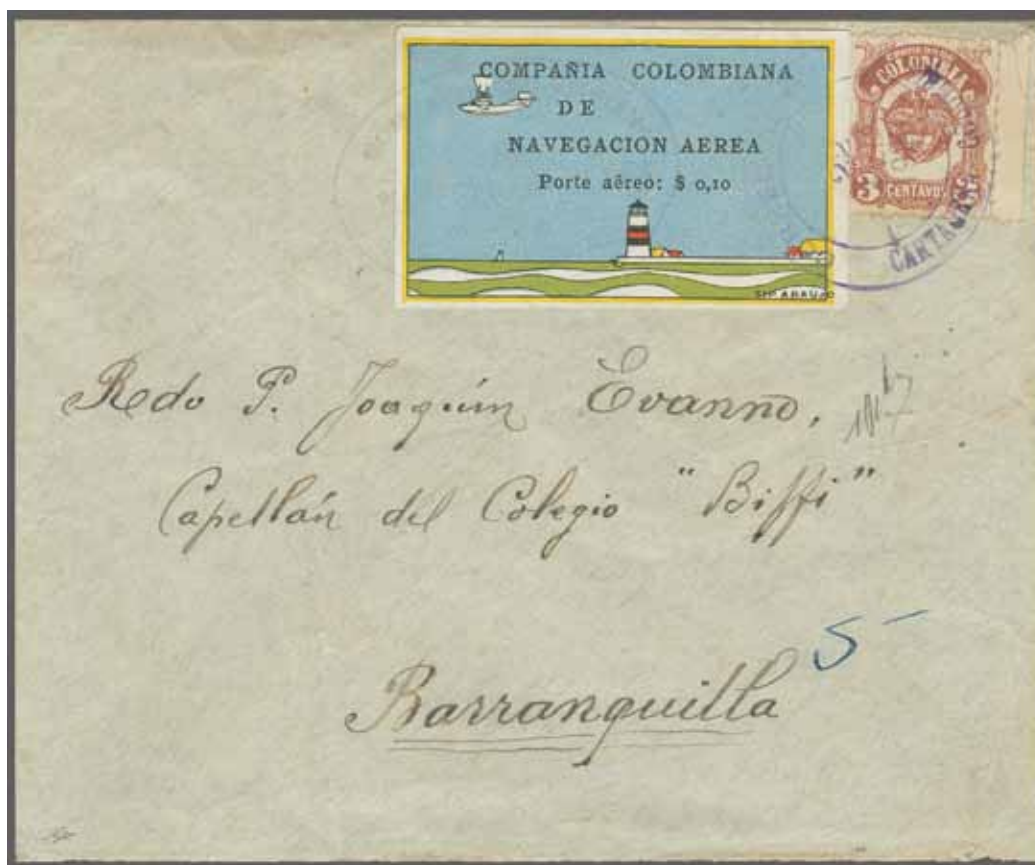 COMPAÑIA COLOMBIANA
DE
NAVEGACION AEREA
Porte aéreo: $ 0,10
COLOMBIA
3 CENTAVOS
CARTAGENA
Redo P. Joaquín Evanno,
Capellán del Colegio "Biffi"
5-
Barranquilla